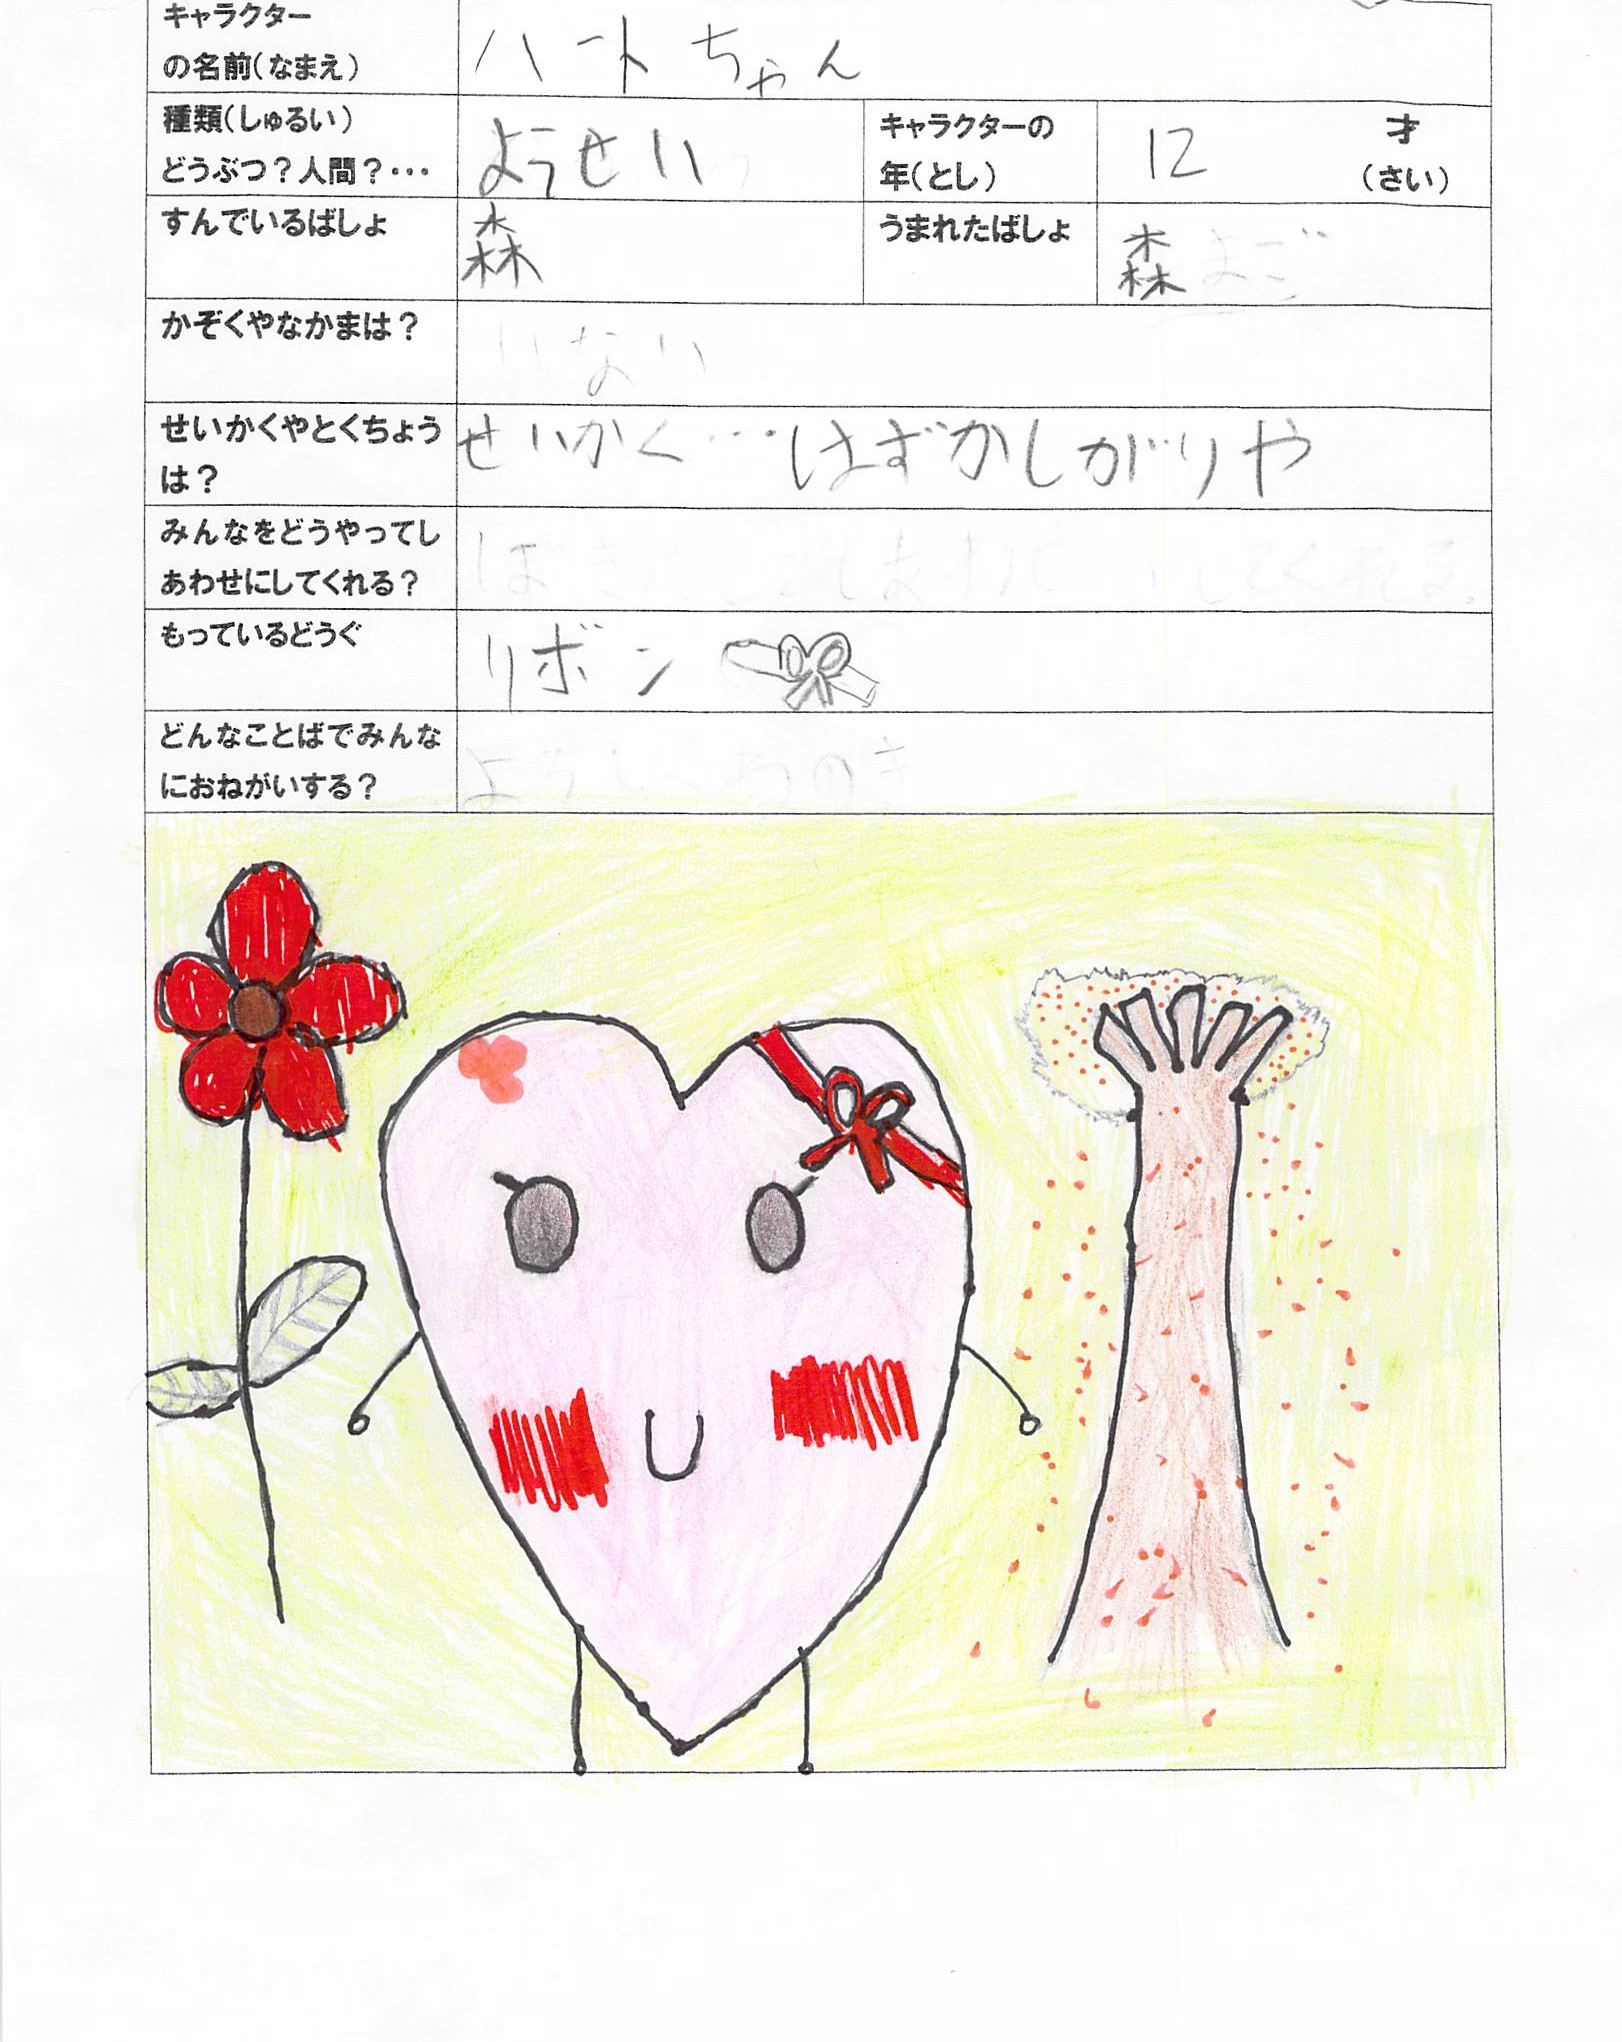 キャラクター
の名前(なまえ)
ハートちゃん
種類(しゅるい)
どうぶつ？人間？・・・
ようせい
キャラクターの
年(とし)
12
才
(さい)
すんでいるばしょ
森
うまれたばしょ
森
かぞくやなかまは？
いない
せいかくやとくちょう
は？
せいかく…はずかしがりや
みんなをどうやってし
あわせにしてくれる？
してくれる。
もっているどうぐ
リボン
どんなことばでみんな
におねがいする？